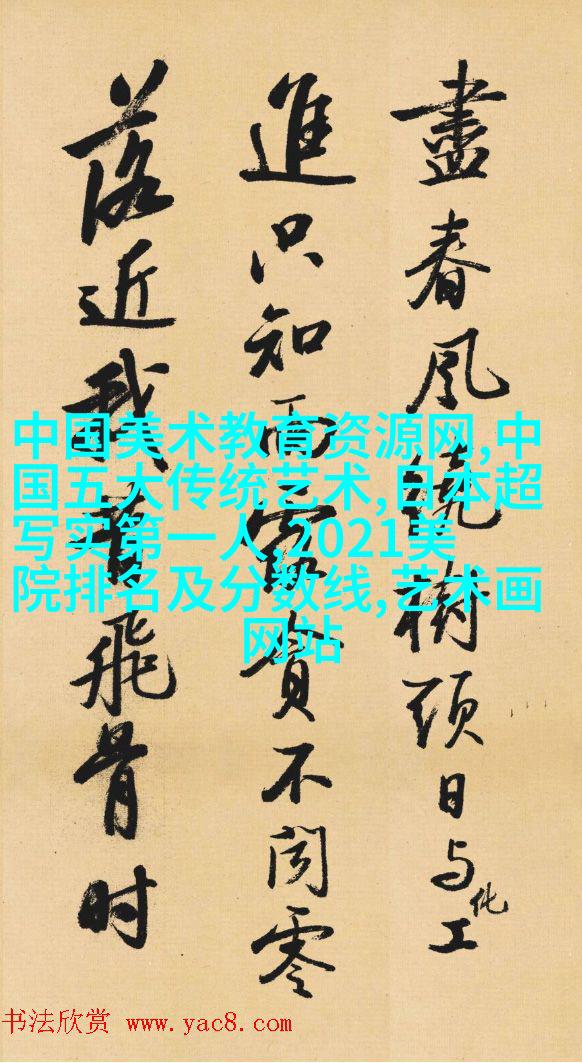 盡春風繞樹頭日与化工
進只知雨露貪不聞零
落近我昔飛骨时
中国美术教育资源网,中
国五大传统艺术,日本超
写实第一人,2021美
院排名及分数线,艺术画
网站
书法欣赏 www.yac8.com